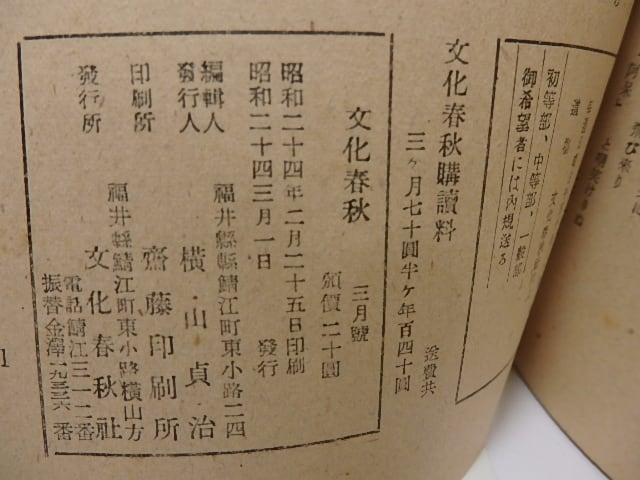 初等部、中等部、一般部
御希望者には内規送る
文化春秋購讀料
三ヶ月七十圓半ヶ年百四十圓 送費共
文化春秋 三月號
頒價二十圓
昭和二十四年二月二十五日印刷
昭和二十四三月一日 發行
編輯人
發行人 横山貞治
福井縣縣鯖江町東小路二四
印刷所 齋藤印刷所
福井縣鯖江町東小路横山方
發行所 文化春秋社
電話鯖江三一二番
振替金澤一九三三六番